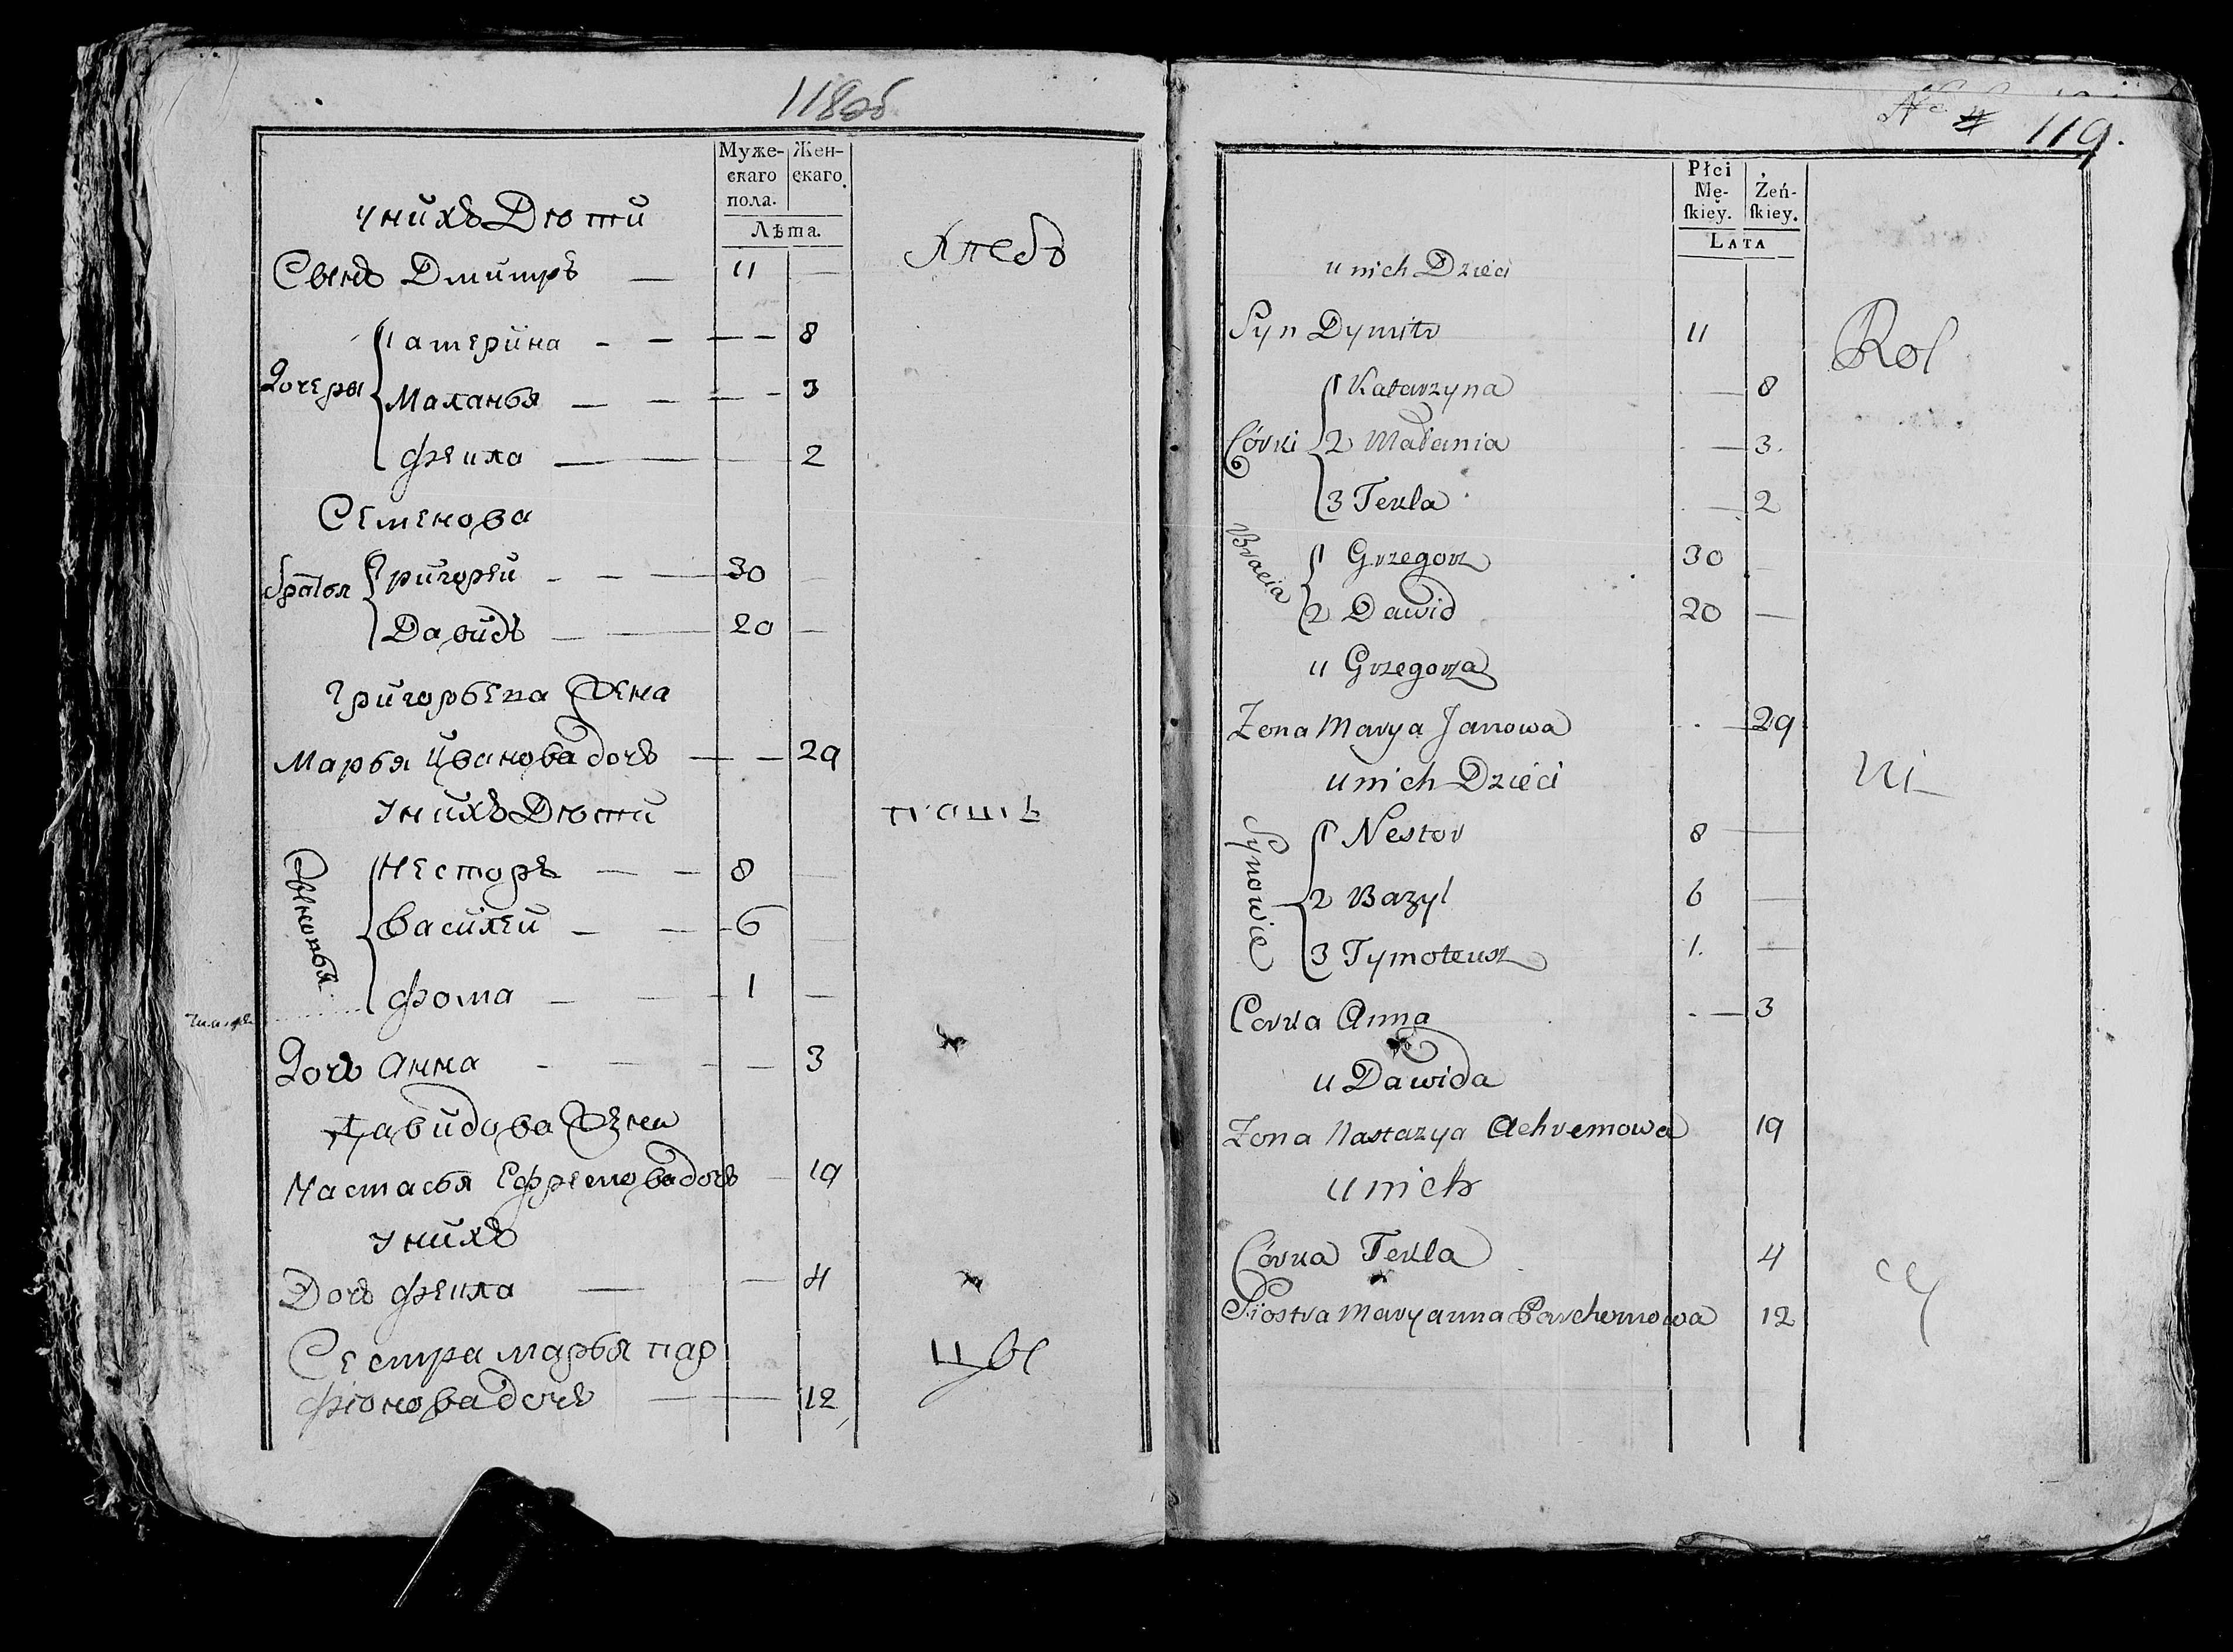 118об
Муже-
скаго
пола.
Жен-
скаго.
Лѣта.
у нихъ Дѣти
Сынъ Дмитръ — 11 —
Хлебо
Дочеры
Катерина — — — — 8
Маланья — — — — 3
Фекла — — — 2
Семенова
братья
Григорей — — — 30 —
Давидъ — — 20 —
Григорьева Жена
Марья Иванова дочь — — 29
У нихъ Дѣти
паш
Сыновья
Несторъ — — 8 —
Василей — — 6 —
Фома — — 1 —
Дочь Анна — — — — 3
Давидова Жена
Настасья Ефремова дочь — 19
У нихъ
Дочь Фекла — — 4
Сестра марья пар
фіонова дочь — — 12
цы
№
119.
Płci
Mę-
skiey.
Żeń-
skiey.
LATA
u nich Dzieci
Syn Dymitr 11
Rol
Córki
1 Katarzyna — 8
2 Małania — 3.
3 Tekla — 2
Bracia
1 Grzegorz 30 —
2 Dawid 20 —
u Grzegorza
Zona Marya Janowa — 29
u nich Dzieci
ni
Synowie
1 Nestor 8 —
2 Bazyl 6 —
3 Tymoteusz 1. —
Corka Anna — 3
u Dawida
Zona Nastazya Achremowa 19
u nich
Córka Tekla 4
cy
Siostra Maryanna Parchomowa 12